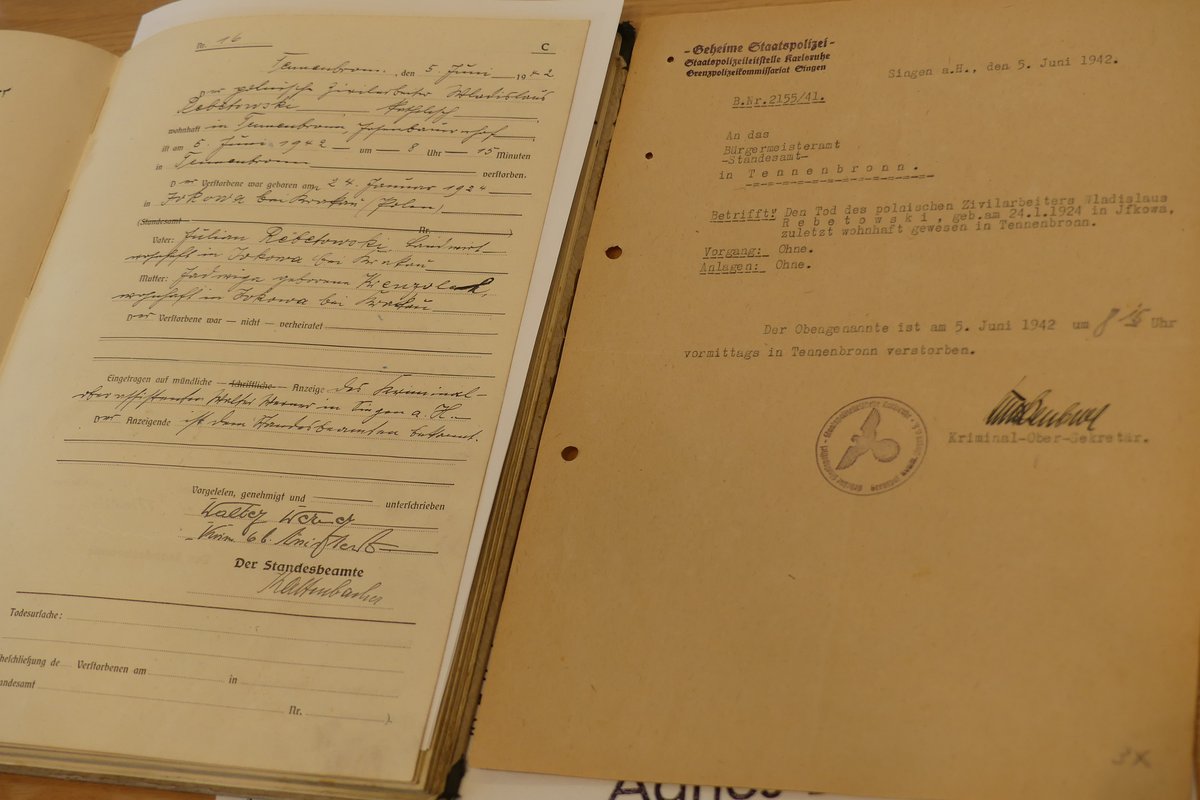 Nr. 16
C
Tennenbronn, den 5. Juni 1942
Der polnische Zivilarbeiter Wladislaus
Rebetowski katholisch
wohnhaft in Tennenbronn,
ist am 5. Juni 1942 um 8 Uhr 15 Minuten
in Tennenbronn verstorben.
Der Verstorbene war geboren am 24. Januar 1924
in Jokowa bei Krakau (Polen)
(Standesamt Nr. )
Vater: Julian Rebetowski, Landwirt
wohnhaft in Jokowa bei Krakau
Mutter: Jadwiga geborene
wohnhaft in Jokowa bei Krakau
Der Verstorbene war — nicht — verheiratet
Eingetragen auf mündliche — schriftliche — Anzeige des Kriminal-
oberassistenten Walter Werner in Singen a. H.
Der Anzeigende ist dem Standesbeamten bekannt.
Vorgelesen, genehmigt und unterschrieben
Walter Werner
Der Standesbeamte
Kaltenbacher
Todesursache:
Verstorbenen am in
Nr. )
-Geheime Staatspolizei-
Staatspolizeileitstelle Karlsruhe
Grenzpolizeikommissariat Singen
Singen a.H., den 5. Juni 1942.
B.Nr.2155/41.
An das
Bürgermeisteramt
-Standesamt-
in Tennenbronn.
Betrifft: Den Tod des polnischen Zivilarbeiters Wladislaus
Rebetowski, geb.am 24.1.1924 in Jfkowa,
zuletzt wohnhaft gewesen in Tennenbronn.
Vorgang: Ohne.
Anlagen: Ohne.
Der Obengenannte ist am 5. Juni 1942 um 8 15 Uhr
vormittags in Tennenbronn verstorben.
Kriminal-Ober-Sekretär.
3x